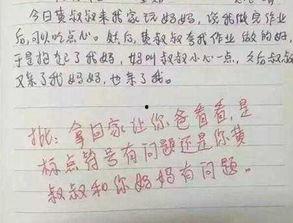 今日黄叔叔来我家玩妈妈，说我做完作业
后，可以吃点心。然后，黄叔叔夸我作业做的好，
于是抱起了我妈妈，妈叫叔叔小心一点，之后叔叔
又亲了我妈妈，也亲了我。
批：拿回家让你爸看看，是
标点符号有问题还是你黄
叔叔和你妈妈有问题。